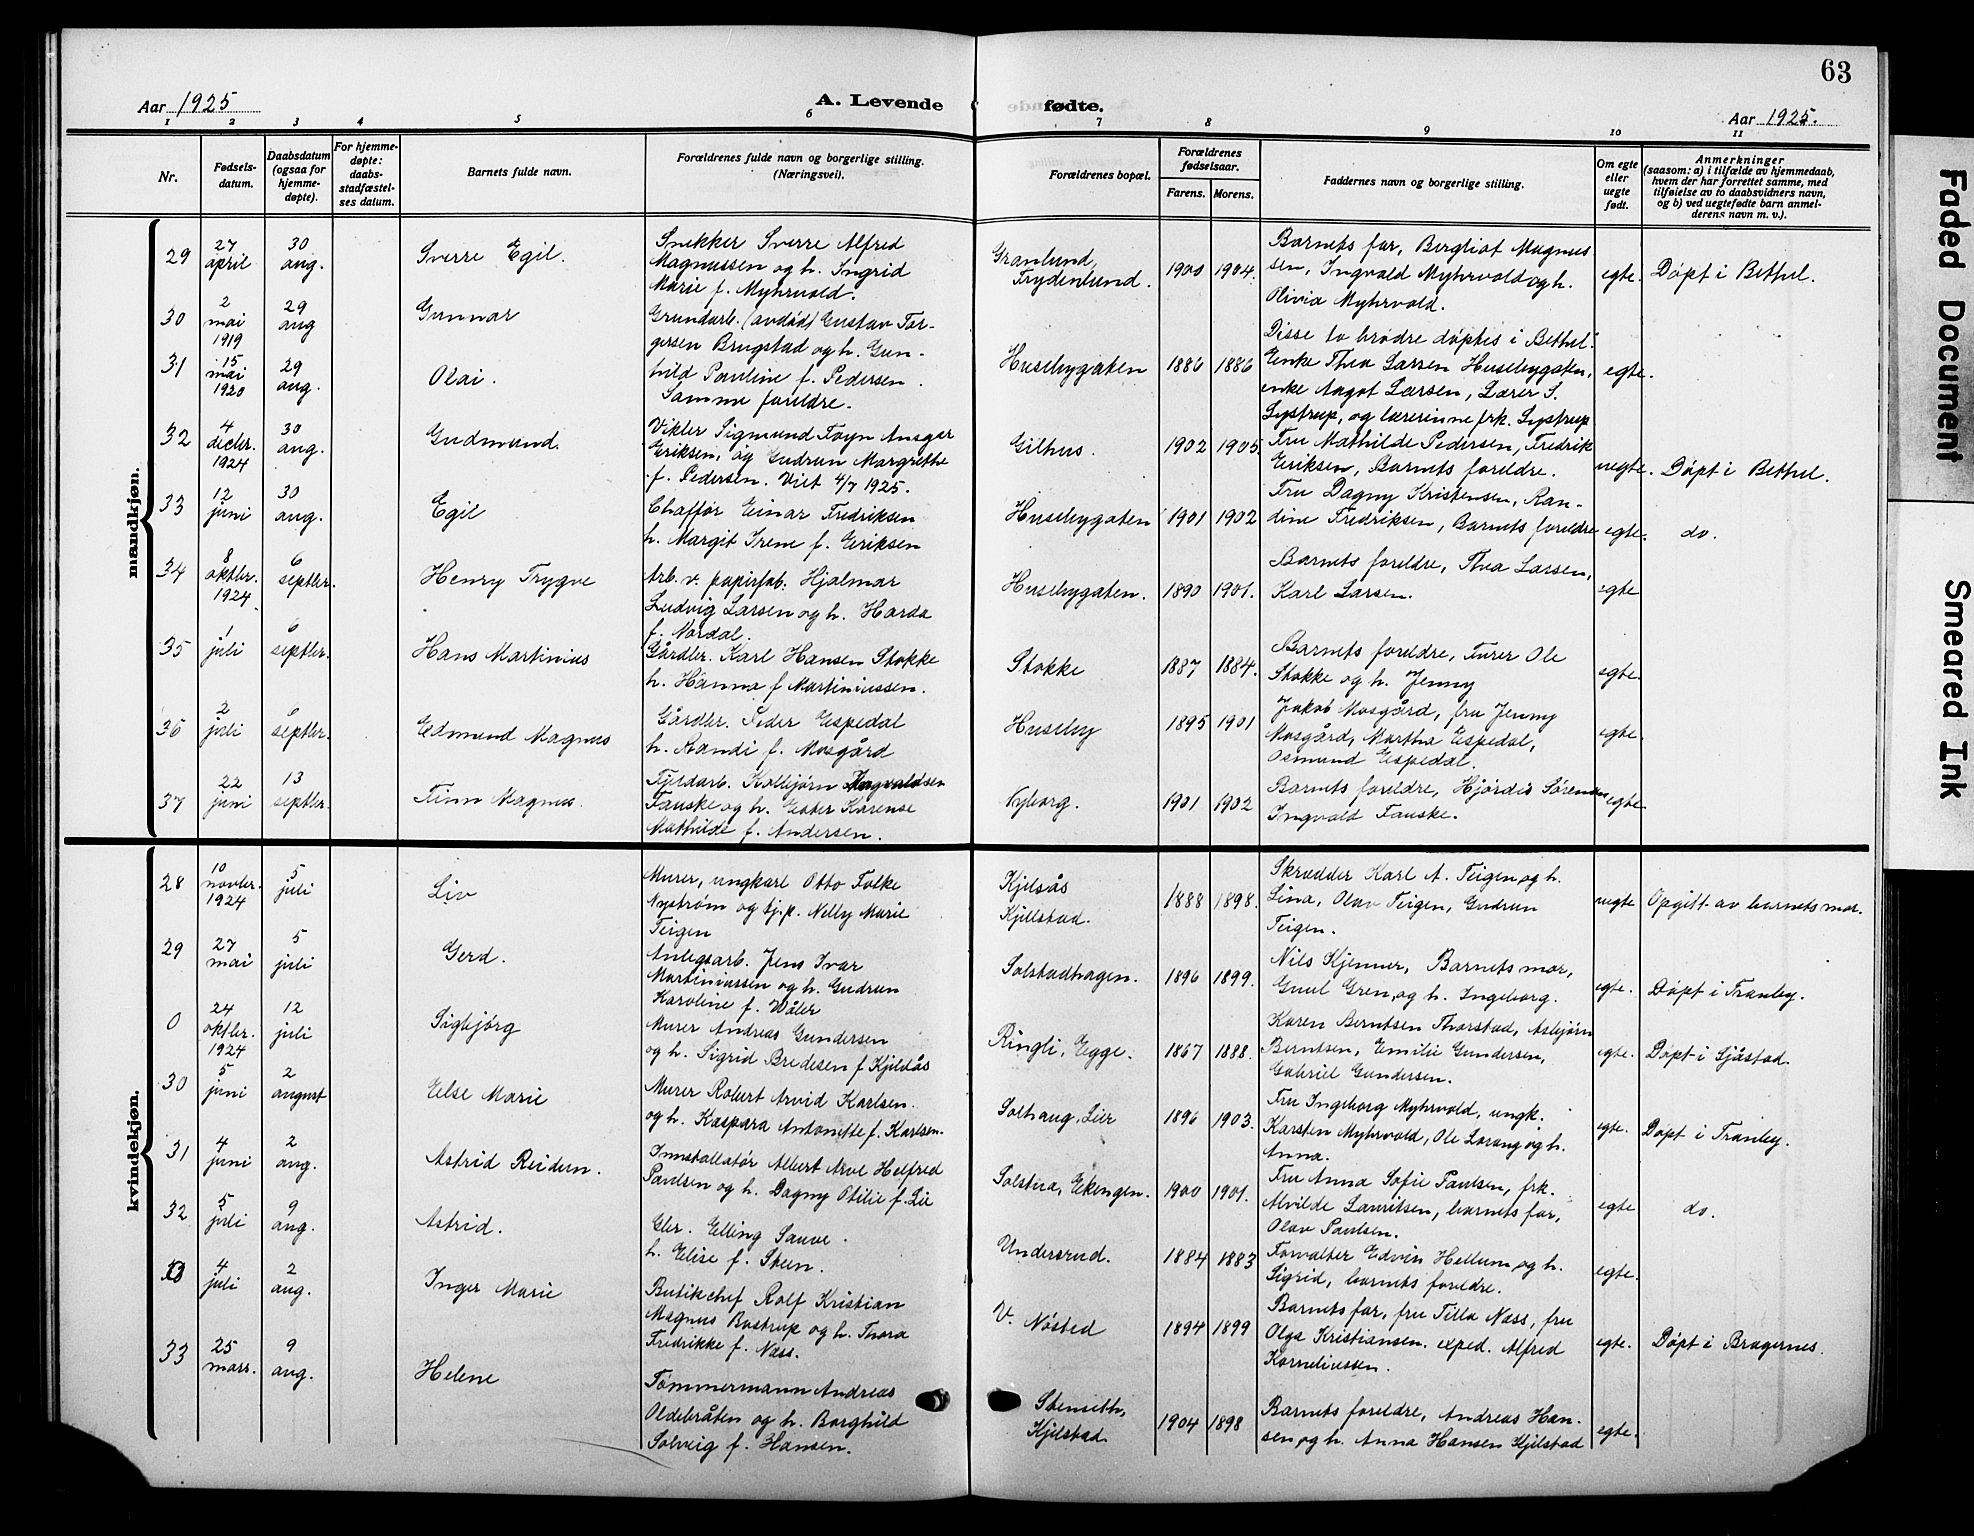 63
Aar 1925
A. Levende fødte.
Aar 1925.
1 2 3 4 5 6 7 8 9 10 11
Nr.
Fødsels-
datum.
Daabsdatum
(ogsaa for
hjemme-
døpte).
For hjemme-
døpte:
daabs-
stadfæstel-
ses datum.
Barnets fulde navn.
Forældrenes fulde navn og borgerlige stilling.
(Næringsvei).
Forældrenes bopæl.
Forældrenes
fødselsaar.
Farens. Morens.
Faddernes navn og borgerlige stilling.
Om egte
eller
uegte
født.
Anmerkninger
(saasom: a) i tilfælde av hjemmedaab,
hvem der har forrettet samme, med
tilføielse av to daabsvidners navn,
og b) ved uegtefødte barn anmel-
derens navn m. v.).
mandkjøn.
29
27
april
30
aug.
Sverre Egil.
Snekker Sverre Alfred
Magnussen og h. Ingrid
Marie f. Myhrvold.
Granlund,
Frydenlund.
1900 1904.
Barnets far, Bergliot Magnus
sen, Ingvald Myhrvold og h.
Olivia Myhrvold.
egte.
Døpt i Bethel.
30
2
mai
1919
29
aug
Gunnar
Grundarb. (avdød) Gustav Tor-
gersen Brugstad og h. Gun-
hild Pauline f. Pedersen.
31
15
mai
1920
29
aug.
Olai.
Samme foreldre.
Husebygaten
1886 1886
Disse to brødre døptes i Bethel.
Enke Thea Larsen Husebygaten,
enke Aagot Larsen, Lærer S.
Lystrup, og lærerinne frk. Lystrup
egte.
32
4
decbr.
1924
30
aug.
Gudmund.
Vikler Sigmund Foyn Ansgar
Eriksen, og Gudrun Margrethe
f. Pedersen. Viet 4/7 1925.
Gilhus.
1902 1905
Fru Mathilde Pedersen, Fredrik
Eriksen, Barnets foreldre.
uegte.
Døpt i Bethel.
33
12
juni
30
aug.
Egil
Chaffør Einar Fredriksen
h. Margit Irene f. Eriksen
Husebygaten
1901 1902
Fru Dagny Kristensen, Ran-
dine Fredriksen, Barnets foreldre
egte.
do.
34
8
oktbr.
1924
6
septbr.
Henry Trygve
Arb. v. papirfab. Hjalmar
Ludvig Larsen og h. Harda
f. Nordal.
Husebygaten.
1890 1901.
Barnets foreldre, Thea Larsen,
Karl Larsen.
egte
35
1
juli
6
septbr.
Hans Martinius
Gårdbr. Karl Hansen Stokke
h. Hanna f Martiniussen.
Stokke
1887 1884.
Barnets foreldre, Furer Ole
Stokke og h. Jenny
egte.
36
2
juli
6
septbr.
Edmund Magnus
Gårdbr. Peder Espedal
h. Randi f. Mosgård
Huseby
1895 1901
Jakob Mosgård, fru Jenny
Mosgård, Martha Espedal,
Osmund Espedal.
egte.
37
22
juni
13
septbr.
Finn Magnus.
Fjeldarb. Kolbjørn Ingvaldsen
Fauske og h. Ester Karense
Mathilde f. Andersen.
Nyborg.
1901 1902
Barnets foreldre, Hjørdis Sørensen
Ingvald Fauske.
egte.
kvindekjøn.
28
10
novbr.
1924
5
juli
Liv
Murer, ungkarl Otto Folke
Nystrøm og tj.p. Nelly Marie
Teigen
Kjelsås
Kjellstad.
1888 1898.
Skredder Karl A. Teigen og h.
Lina, Olav Teigen, Gudrun
Teigen.
uegte
Opgitt av barnets mor.
29
27
mai
5
juli
Gerd.
Anlegsarb. Jens Ivar
Martiniussen og h. Gudrun
Karoline f. Wåler
Solstadhagen.
1896 1899.
Nils Kjenner, Barnets mor,
Gunl Gren, og h. Ingeborg.
egte.
Døpt i Tranby.
0
24
oktbr.
1924
12
juli
Sigbjørg
Murer Andreas Gundersen
og h. Sigrid Bredesen f Kjelsås
Ringli, Egge.
1867 1888.
Karen Berntsen Thorstad, Asbjørn
Berntsen, Emilie Gundersen,
Gabriel Gundersen.
egte.
Døpt i Sjåstad.
30
5
juni
2
august
Else Marie
Murer Robert Arvid Karlsen.
og h. Kaspara Antonette f. Karlsen.
Solhaug, Lier
1896 1903.
Fru Ingeborg Myhrvold, ungk.
Karsten Myhrvold, Ole Lorang og h.
Anna.
egte.
Døpt i Tranby.
31
4
juni
2
aug.
Astrid Reidun.
Innstallatør Albert Arve Helfred
Paulsen og h. Dagny Otilie f. Lie
Solstua, Ekengen.
1900 1901.
Fru Anna Sofie Paulsen, frk.
Alvilde Lauritsen, barnets far,
Olav Paulsen.
egte
do.
32
5
juli
9
aug.
Astrid.
Gbr. Elling Sauve.
h. Elise f. Steen.
Undersrud.
1884 1883
Forvalter Edvin Hellum og h.
Sigrid, barnets foreldre.
egte.
4
juli
2
aug.
Inger Marie
Butikchef Rolf Kristian
Magnus Bastrup og h. Thora
Fredrikke f. Næss.
V. Nøsted
1894 1899
Barnets far, fru Tilla Næss, fru
Olga Kristiansen. exped. Alfred
Korneliussen.
egte.
Døpt i Bragernes.
33
25
mars.
9
aug.
Helene
Tømmermann Andreas
Oldebråten og h. Borghild
Solveig f. Hansen.
Stenseth,
Kjelstad
1904 1898
Barnets foreldre, Andreas Han-
sen og h. Anna Hansen Kjelstad
egte.
Faded Document
Smeared Ink